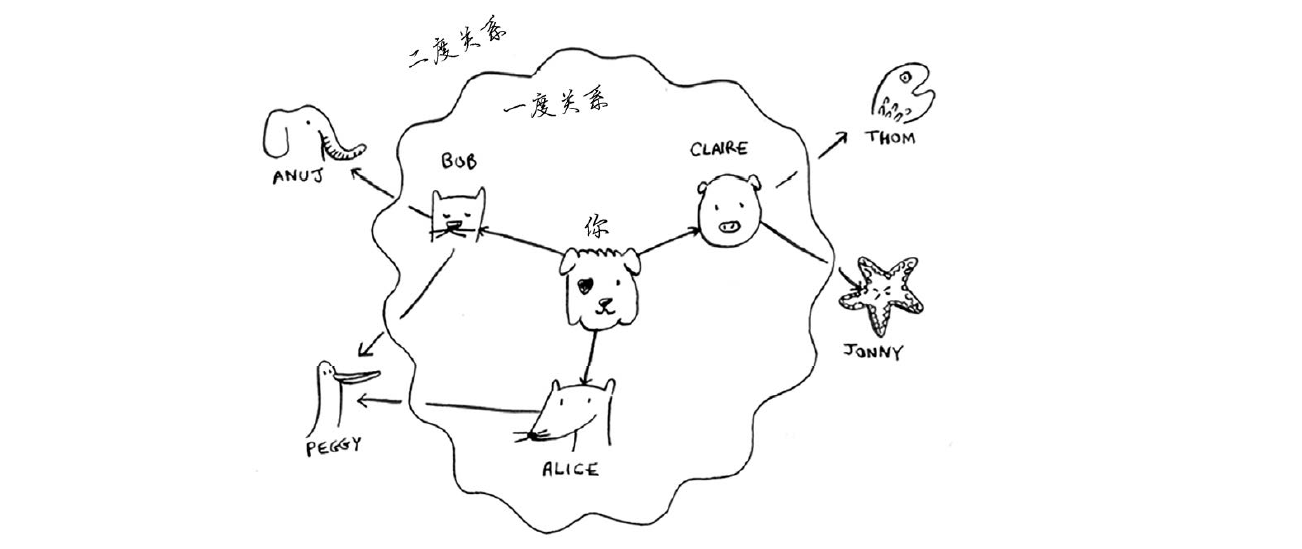 二度关系
一度关系
BOB
CLAIRE
THOM
ANUJ
你
JONNY
PEGGY
ALICE